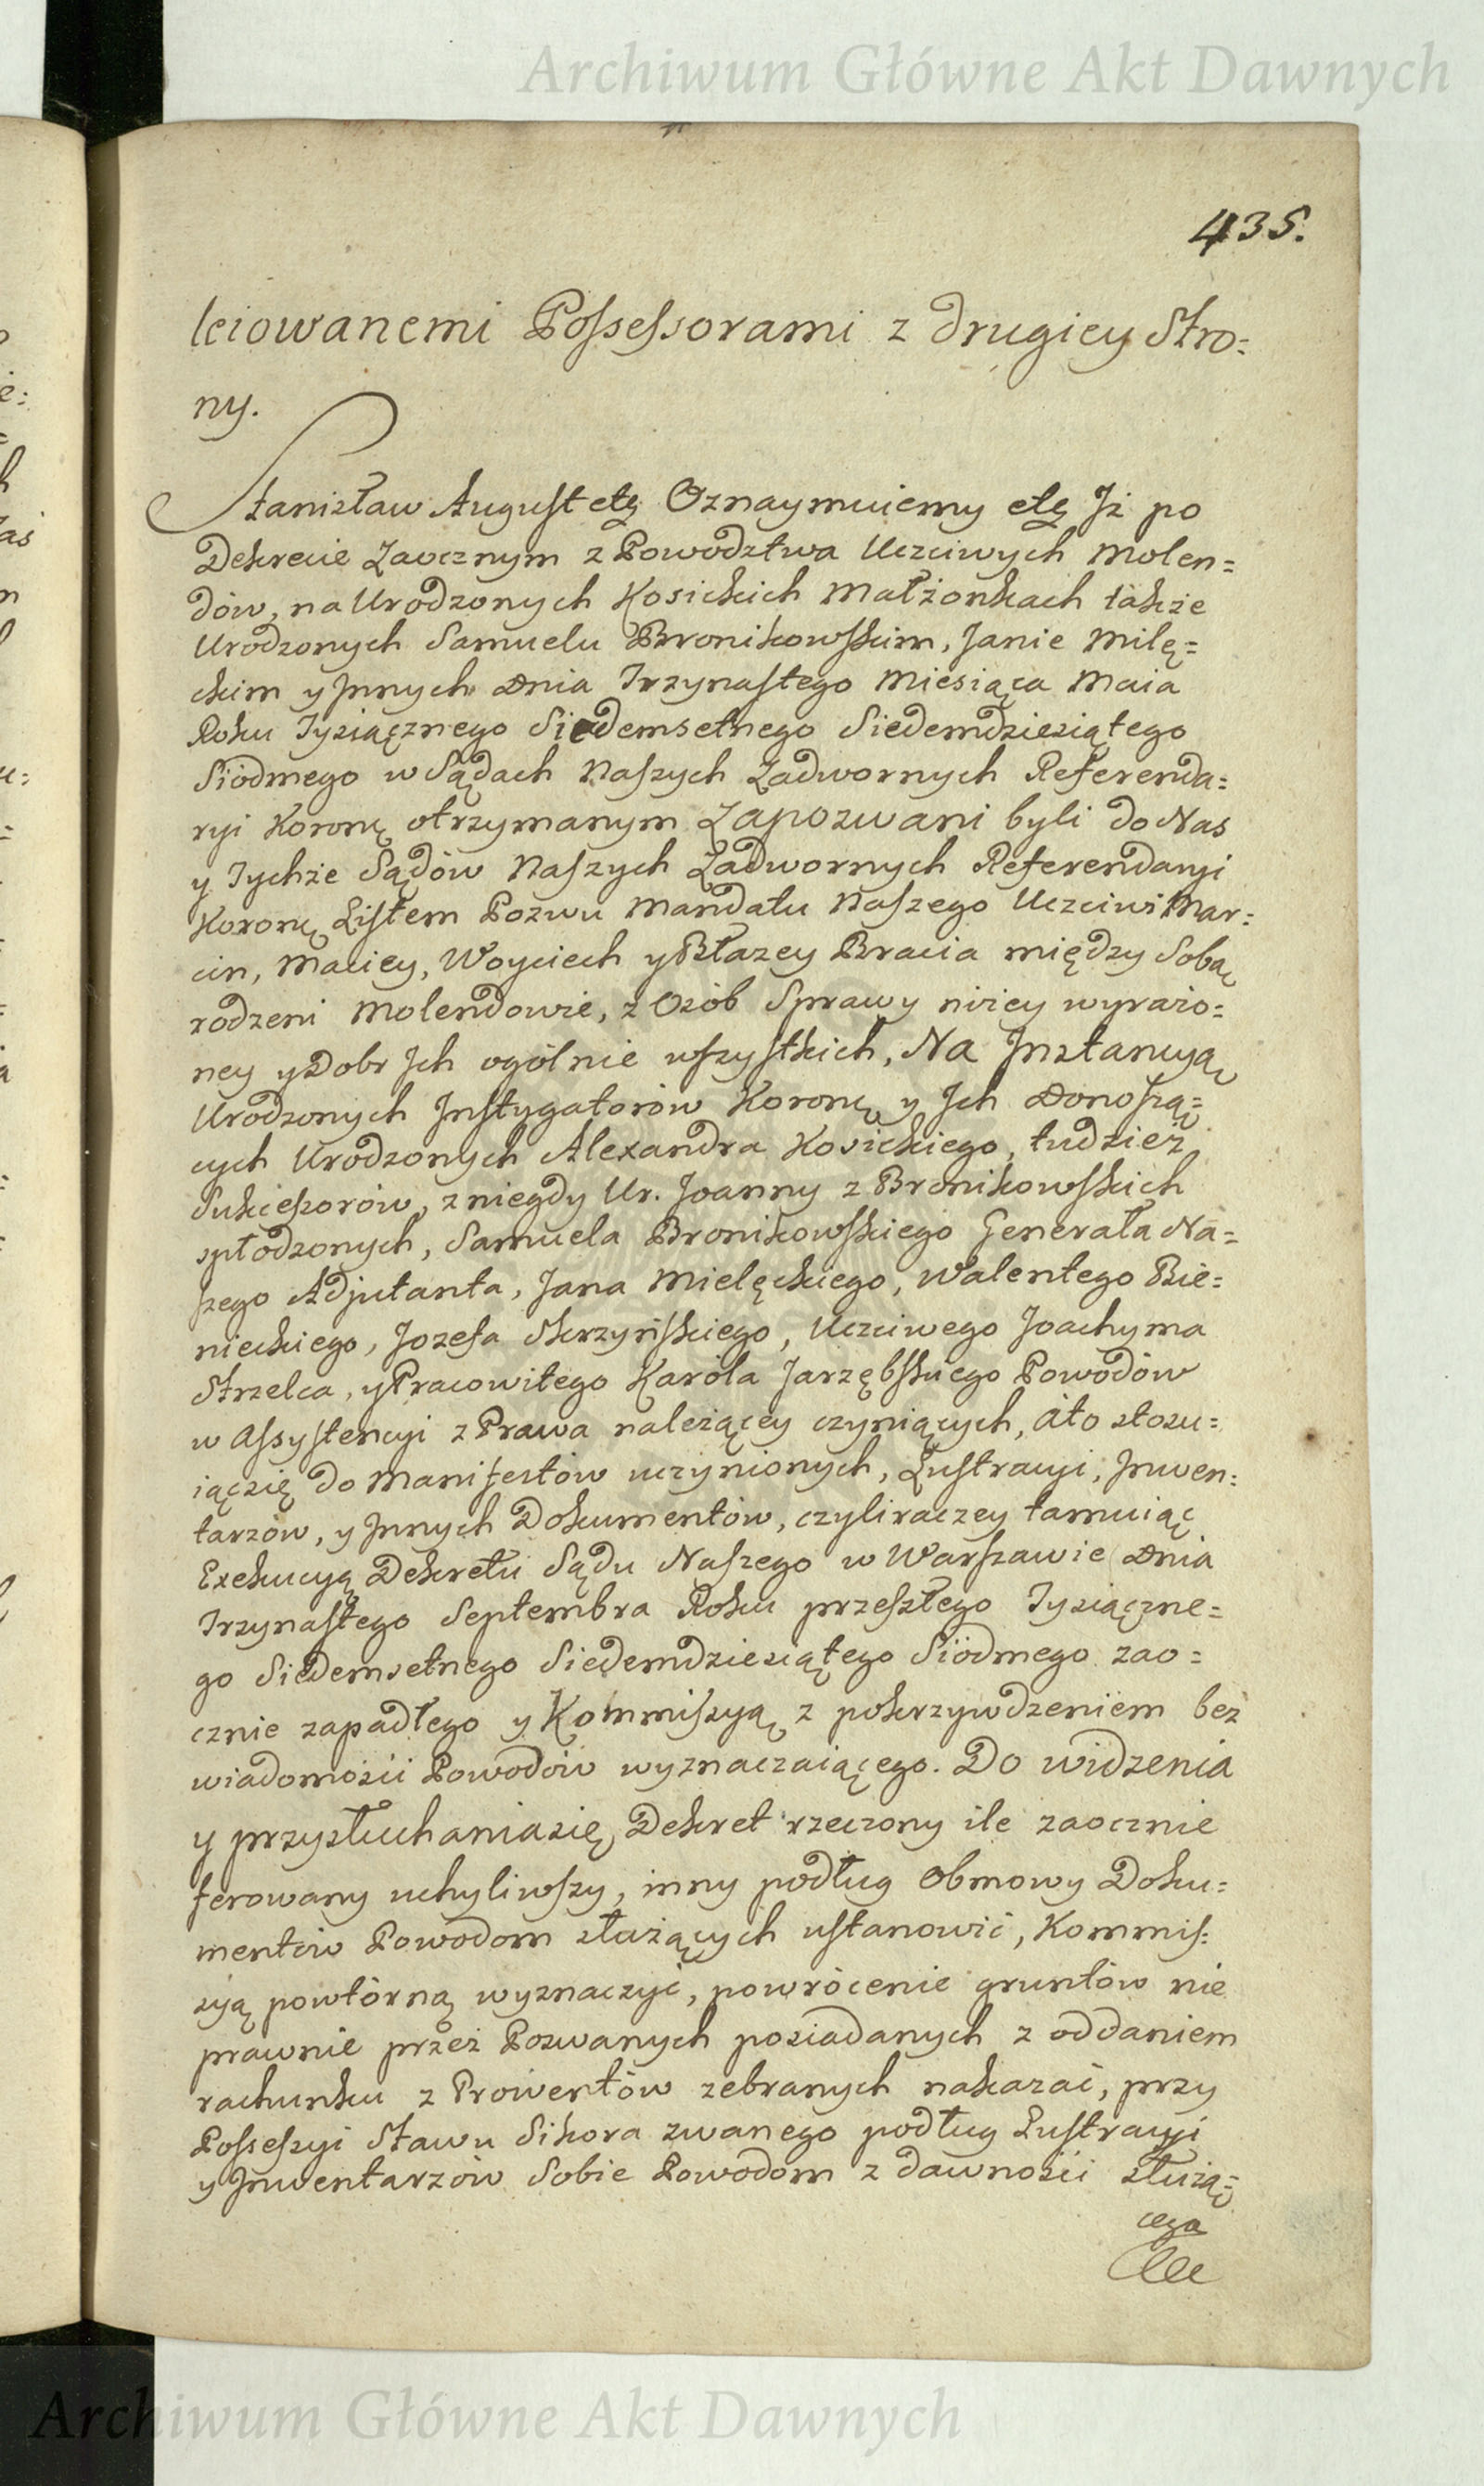 Archiwum Główne Akt Dawnych
435.
leiowanemi Possessorami z drugiey Stro=
ny.
Stanisław August etę Oznaymuiemy etę Jż po
Dekrecie Zaocznym z Powodztwa Uczciwych Molen=
dów, na Urodzonych Kosickich Małżonkach także
Urodzonych Samuelu Bronikowskim, Janie Milę=
ckim y Jnnych Dnia Trzynastego Miesiąca Maia
Roku Tysiącznego Siedemsetnego Siedemdziesiątego
Siódmego w Sądach Naszych Zadwornych Referenda=
ryi Koronę otrzymanym Zapozwani byli do Nas
y Tychże Sądów Naszych Zadwornych Referendaryi
Koronę Listem Pozwu Mandatu Naszego Uczciwi Mar=
cin, Maciey, Woyciech y Błazey Bracia między Sobą
rodzeni Molendowie, z Osób Sprawy niżey wyrażo=
ney y Dobr Jch ogólnie wszystkich, Na Jnstancyą
Urodzonych Jnstygatorów Koronę y Jch Donoszą=
cych Urodzonych Alexandra Kosickiego, tudzież
Sukcessorów, z niegdy Ur. Joanny z Bronikowskich
spłodzonych, Samuela Bronikowskiego Generała Na=
szego Adjutanta, Jana Mielęckiego, Walentego Bie=
nieckiego, Jozefa Skrzyńskiego, Uczciwego Joachyma
Strzelca, y Pracowitego Karóla Jarzębskiego Powodów
w Assystencyi z Prawa należącey czyniących, Ato stosu=
iącsię do Manifestów uczynionych, Lustracyi, Jnwen=
tarzów, y Jnnych Dokumentów, czyliraczey tamuiąc
Exekucyą Dekretu Sądu Naszego w Warszawie Dnia
Trzynastego Septembra Roku przeszłego Tysiączne=
go Siedemsetnego Siedemdziesiątego Siódmego zao=
cznie zapadłego y Kommissyą z pokrzywdzeniem bez
wiadomości Powodów wyznaczaiącego. Do widzenia
y przysłuchaniasię Dekret rzeczony ile zaocznie
ferowany uchyliwszy, inny podług Obmowy Doku=
mentów Powodom służących ustanowić, Kommis=
syą powtórną wyznaczyć, powrócenie gruntów nie
prawnie przez Pozwanych posiadanych z oddaniem
rachunku z Prowentów zebranych nakazać, przy
Possessyi Stawu Sikora zwanego podług Lustracyi
y Jnwentarzów Sobie Powodom z dawności służą=
cego
Archiwum Główne Akt Dawnych